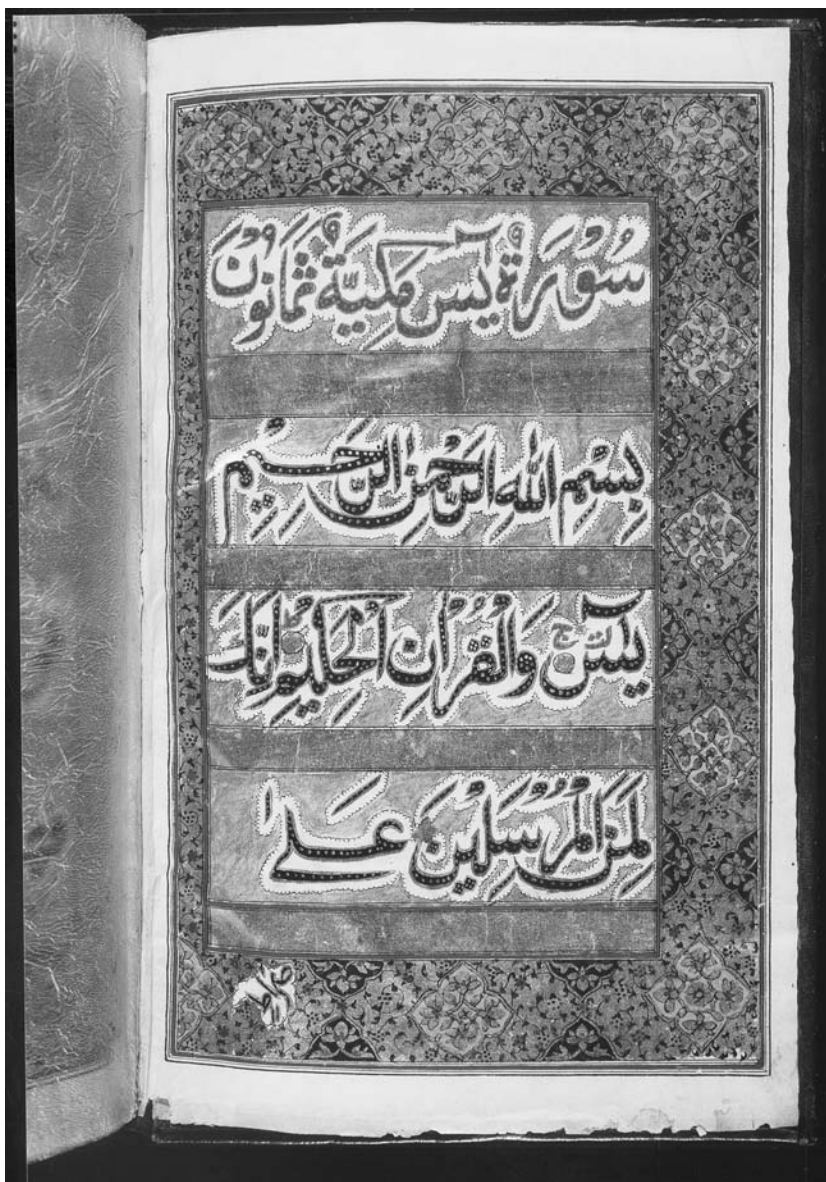 سُوْرَةُ يٰسٓ مَكِّيَّةٌ ثَمَانُوْنَ
بِسْمِ اللّٰهِ الرَّحْمٰنِ الرَّحِيْمِ
يٰسٓ ج وَالْقُرْاٰنِ الْحَكِيْمِ اِنَّكَ
لَمِنَ الْمُرْسَلِيْنَ عَلٰى
صِرَاطٍ